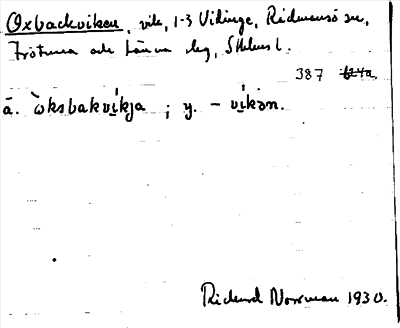 Oxbackviken, vik, 1-3 Vidinge, Rådmansö sn,
Frötuna och Länna slg, Sthlms l.
387
ā. òksbakvíkja ; y. – víkən.
Rickard Norrman 1930.